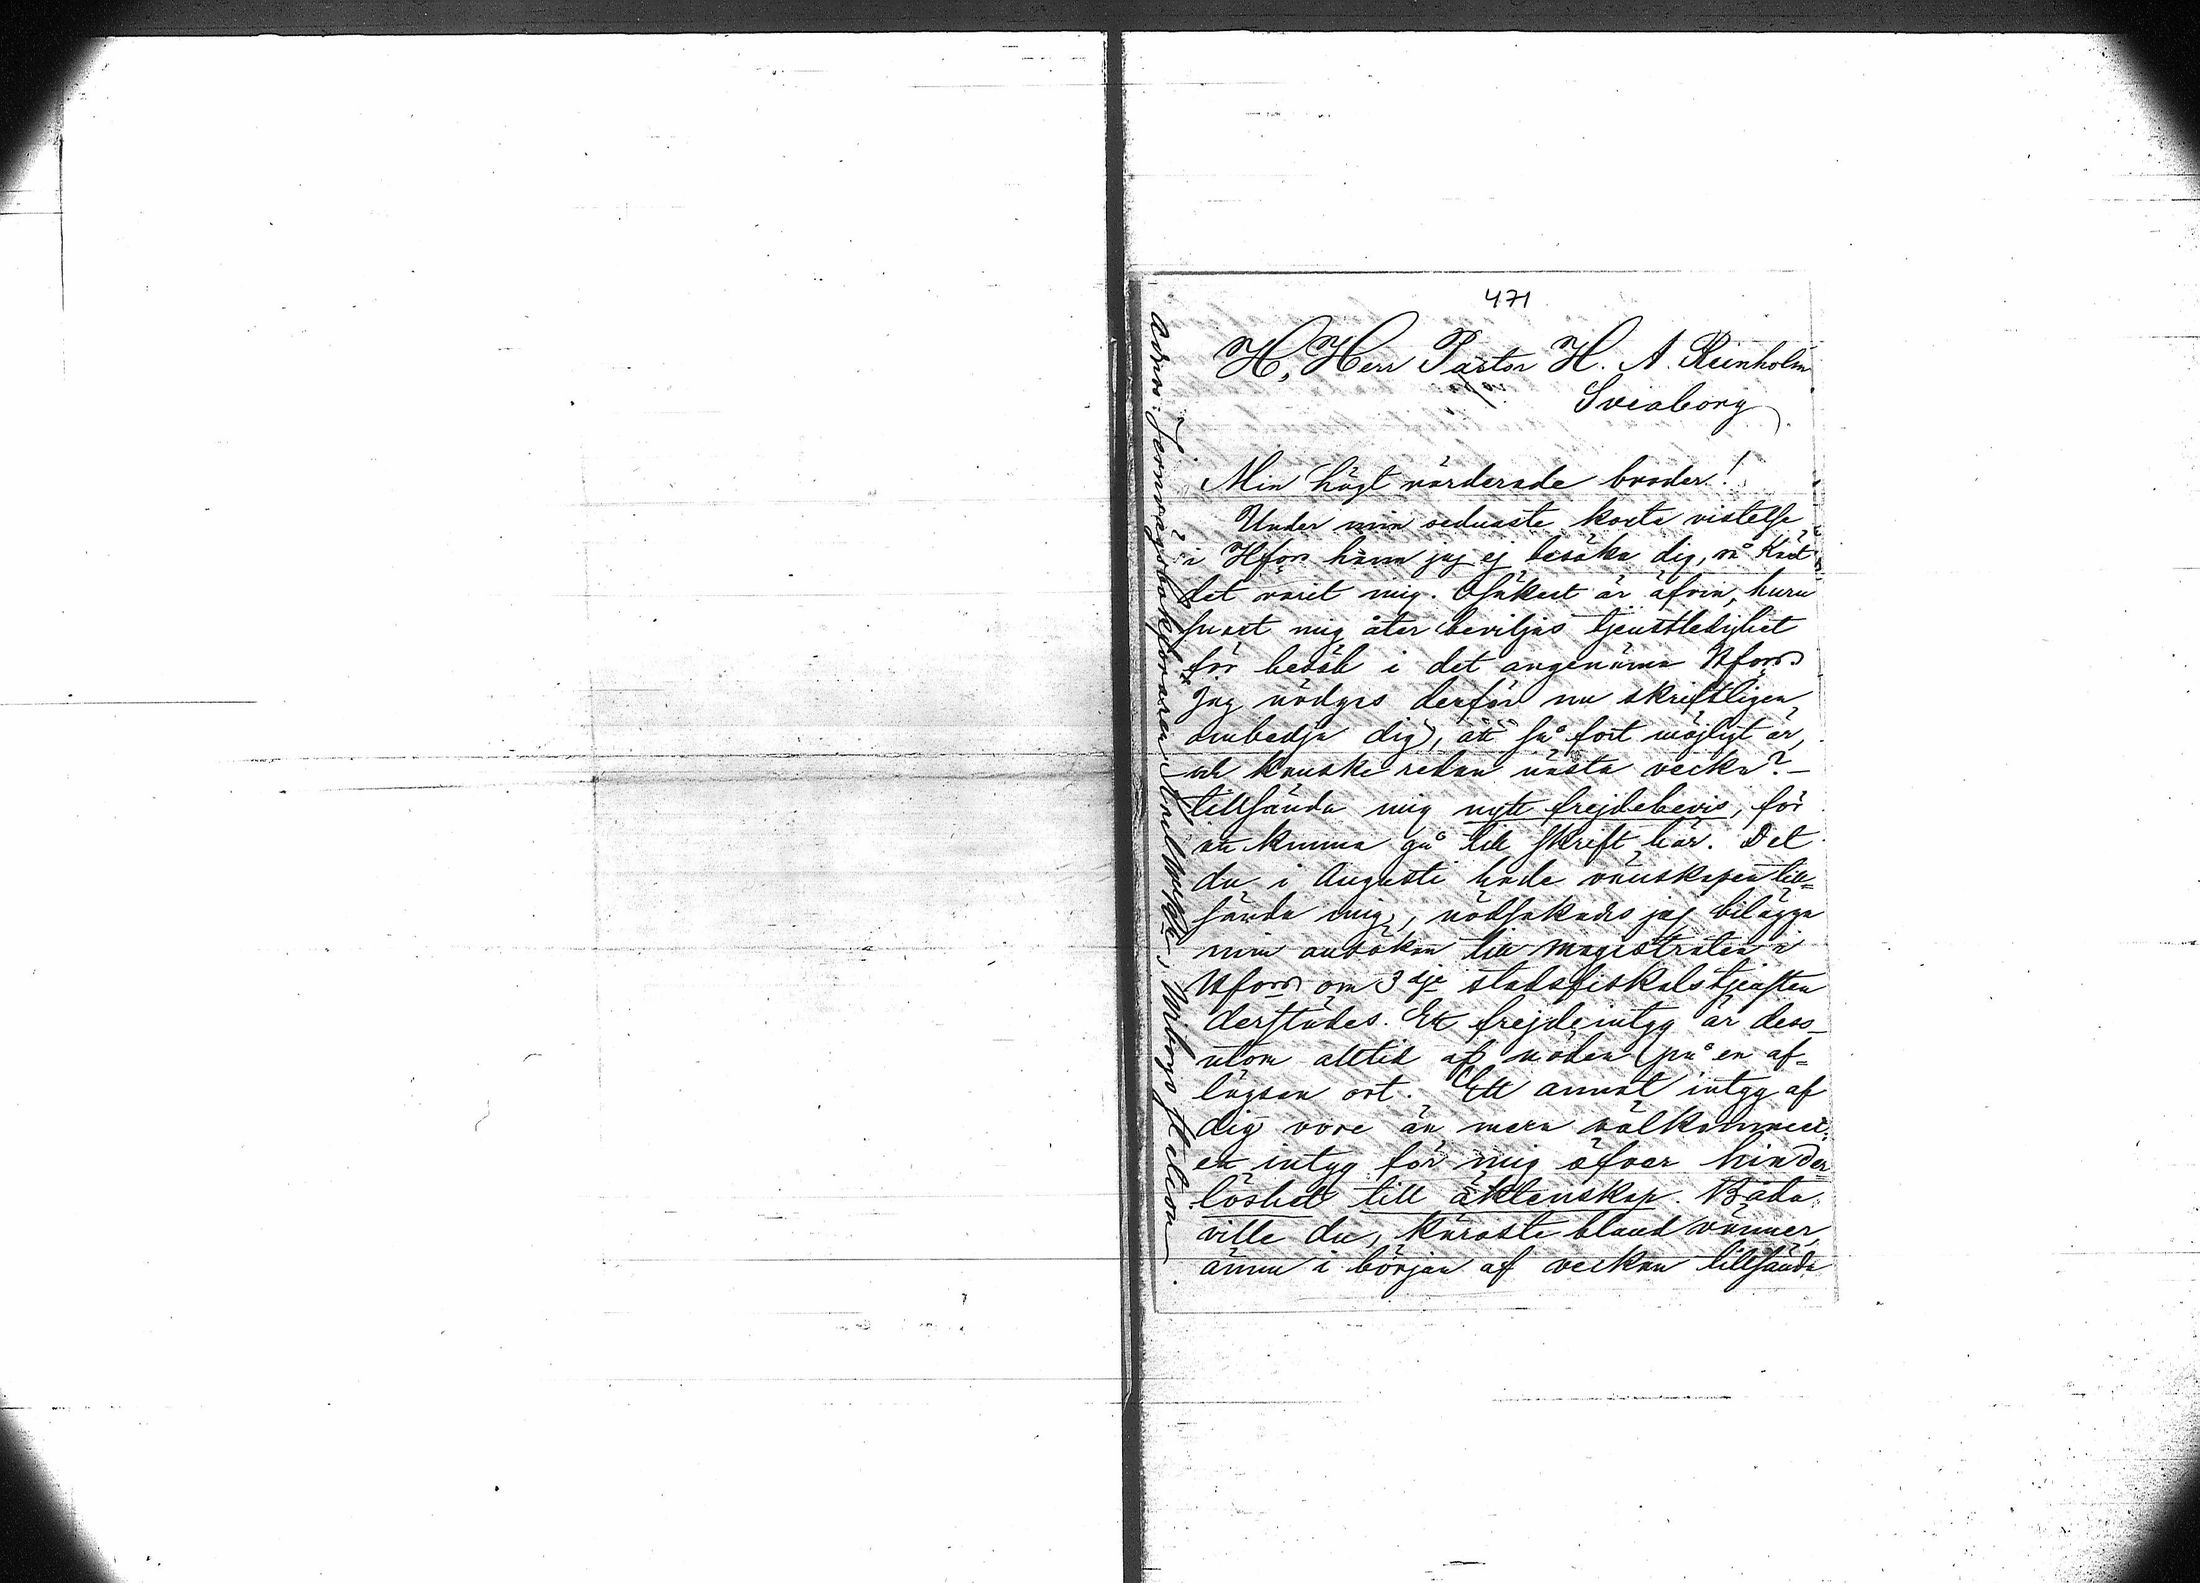 471
H, Herr Pastor H. A. Reinholm
Sveaborg
Min högt värderade broder!
Under min sednaste korta vistelse
i Hfors hann jag ej besöka dig, så kärt
det varit mig. Osäkert är äfven, huru
snart mig åter beviljas tjenstledighet
för besök i det angenäma Hfors.
Jag nödgas derför nu skriftligen
anbedja dig, att så fort möjligt är,
och kanske redan nästa vecka? –
tillsända mig nytt frejdebevis, för
att kunna gå till skrift här. Det
du i Augusti hade vänskapen till=
sända mig, nödsakades jag bilägga
min ansökan till magistraten i
Hfors om 3dje stadsfiskalstjensten
derstädes. Ett frejdeintyg är dess-
utom alltid af nöden på en af=
lägsen ort. Ett annat intyg af
dig vore än mera välkommet:
ett intyg för mig öfver hinder
löshet till äktenskap. Båda
ville du, käraste bland vänner,
ännu i början af veckan tillsända
Adress: Jernvägsbokföraren, Wiborgs station.